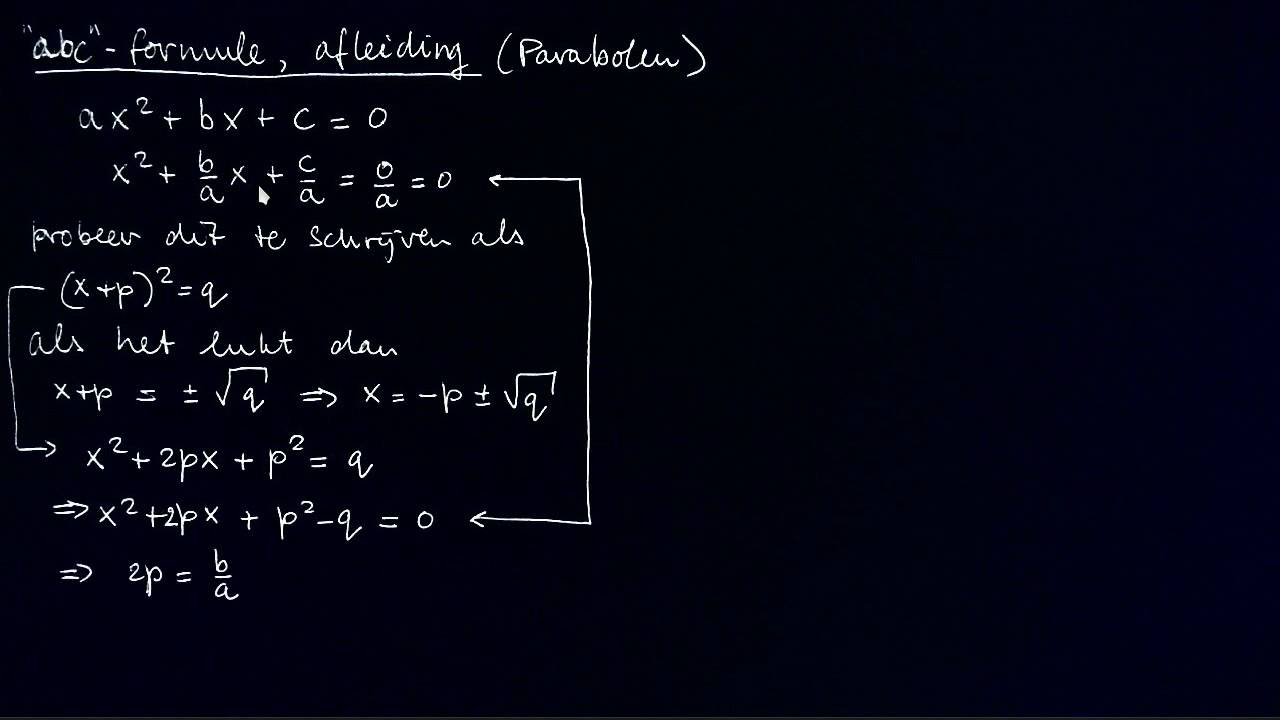 "abc"-formule, afleiding (Parabolen)
ax² + bx + c = 0
x² + b/a x + c/a = 0/a = 0
probeer dit te schrijven als
(x+p)² = q
als het lukt dan
x+p = ± √q ⇒ x = -p ± √q
x² + 2px + p² = q
⇒ x² + 2px + p² - q = 0
⇒ 2p = b/a